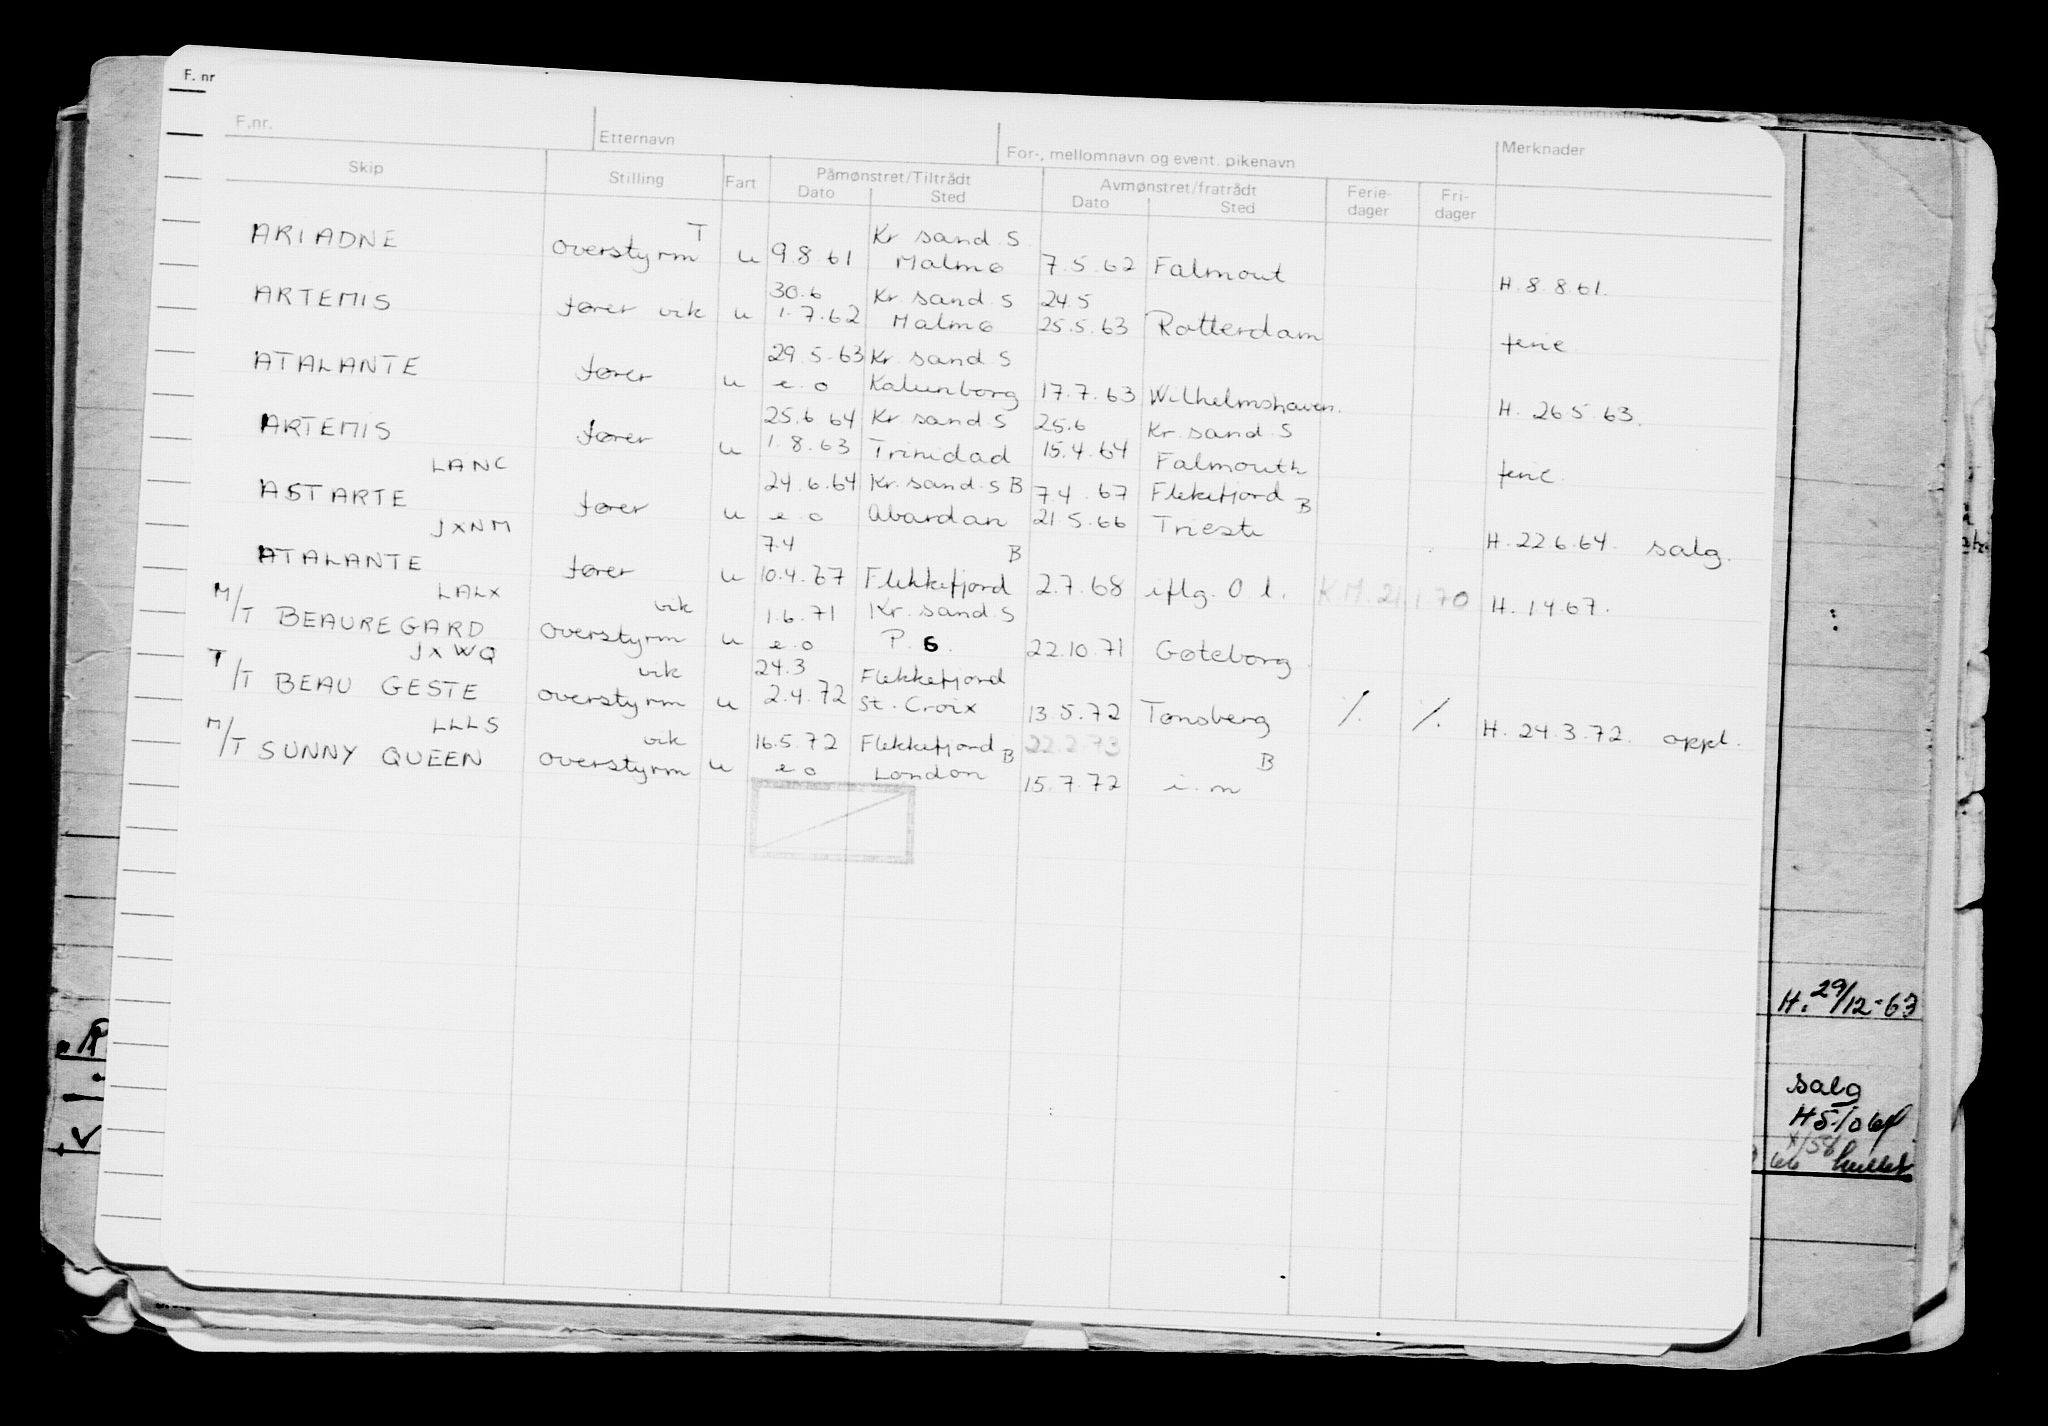 F. nr
F.nr. Etternavn For-, mellomnavn og event. pikenavn Merknader
Skip Stilling Fart Påmønstret/Tiltrådt Avmønstret/fratrådt Ferie- Fri-
Dato Sted Dato Sted dager dager
T Kr sand. S
ARIADNE overstyrm u 9.8.61 Malmø 7.5.62 Falmout H. 8.8.61.
30.6 Kr sand. S 24.5
ARTEMIS fører vik u 1.7.62 Malmø 25.5.63 Rotterdam ferie
29.5.63 Kr. sand. S
ATALANTE fører u e.o Kalunborg 17.7.63 Wilhelmshaven. H. 26.5.63.
25.6.64 Kr. sand. S 25.6 Kr. sand. S
ARTEMIS fører u 1.8.63 Trinidad 15.4.64 Falmouth ferie.
LANC 24.6.64 Kr. sand. S B 7.4.67 Flekkefjord B
ASTARTE fører u e.o Abardan 21.5.66 Trieste H. 22.6.64. salg.
JXNM 7.4 B
ATALANTE fører u 10.4.67 Flekkefjord 2.7.68 iflg. O.l. K.M. 21.1.70 H. 1.4.67.
LALX vik 1.6.71 Kr. sand. S
M/T BEAUREGARD overstyrm u e.o P.G. 22.10.71 Gøteborg.
JXWQ vik 24.3 Flekkefjord
T/T BEAU GESTE overstyrm u 2.4.72 St. Croix 13.5.72 Tønsberg /. /. H. 24.3.72. oppl.
LLLS vik 16.5.72 Flekkefjord B 22.2.73 B
M/T SUNNY QUEEN overstyrm u e.o London 15.7.72 i.m
H. 29/12-63
salg
H 5/10 64
X/58
66 hullet